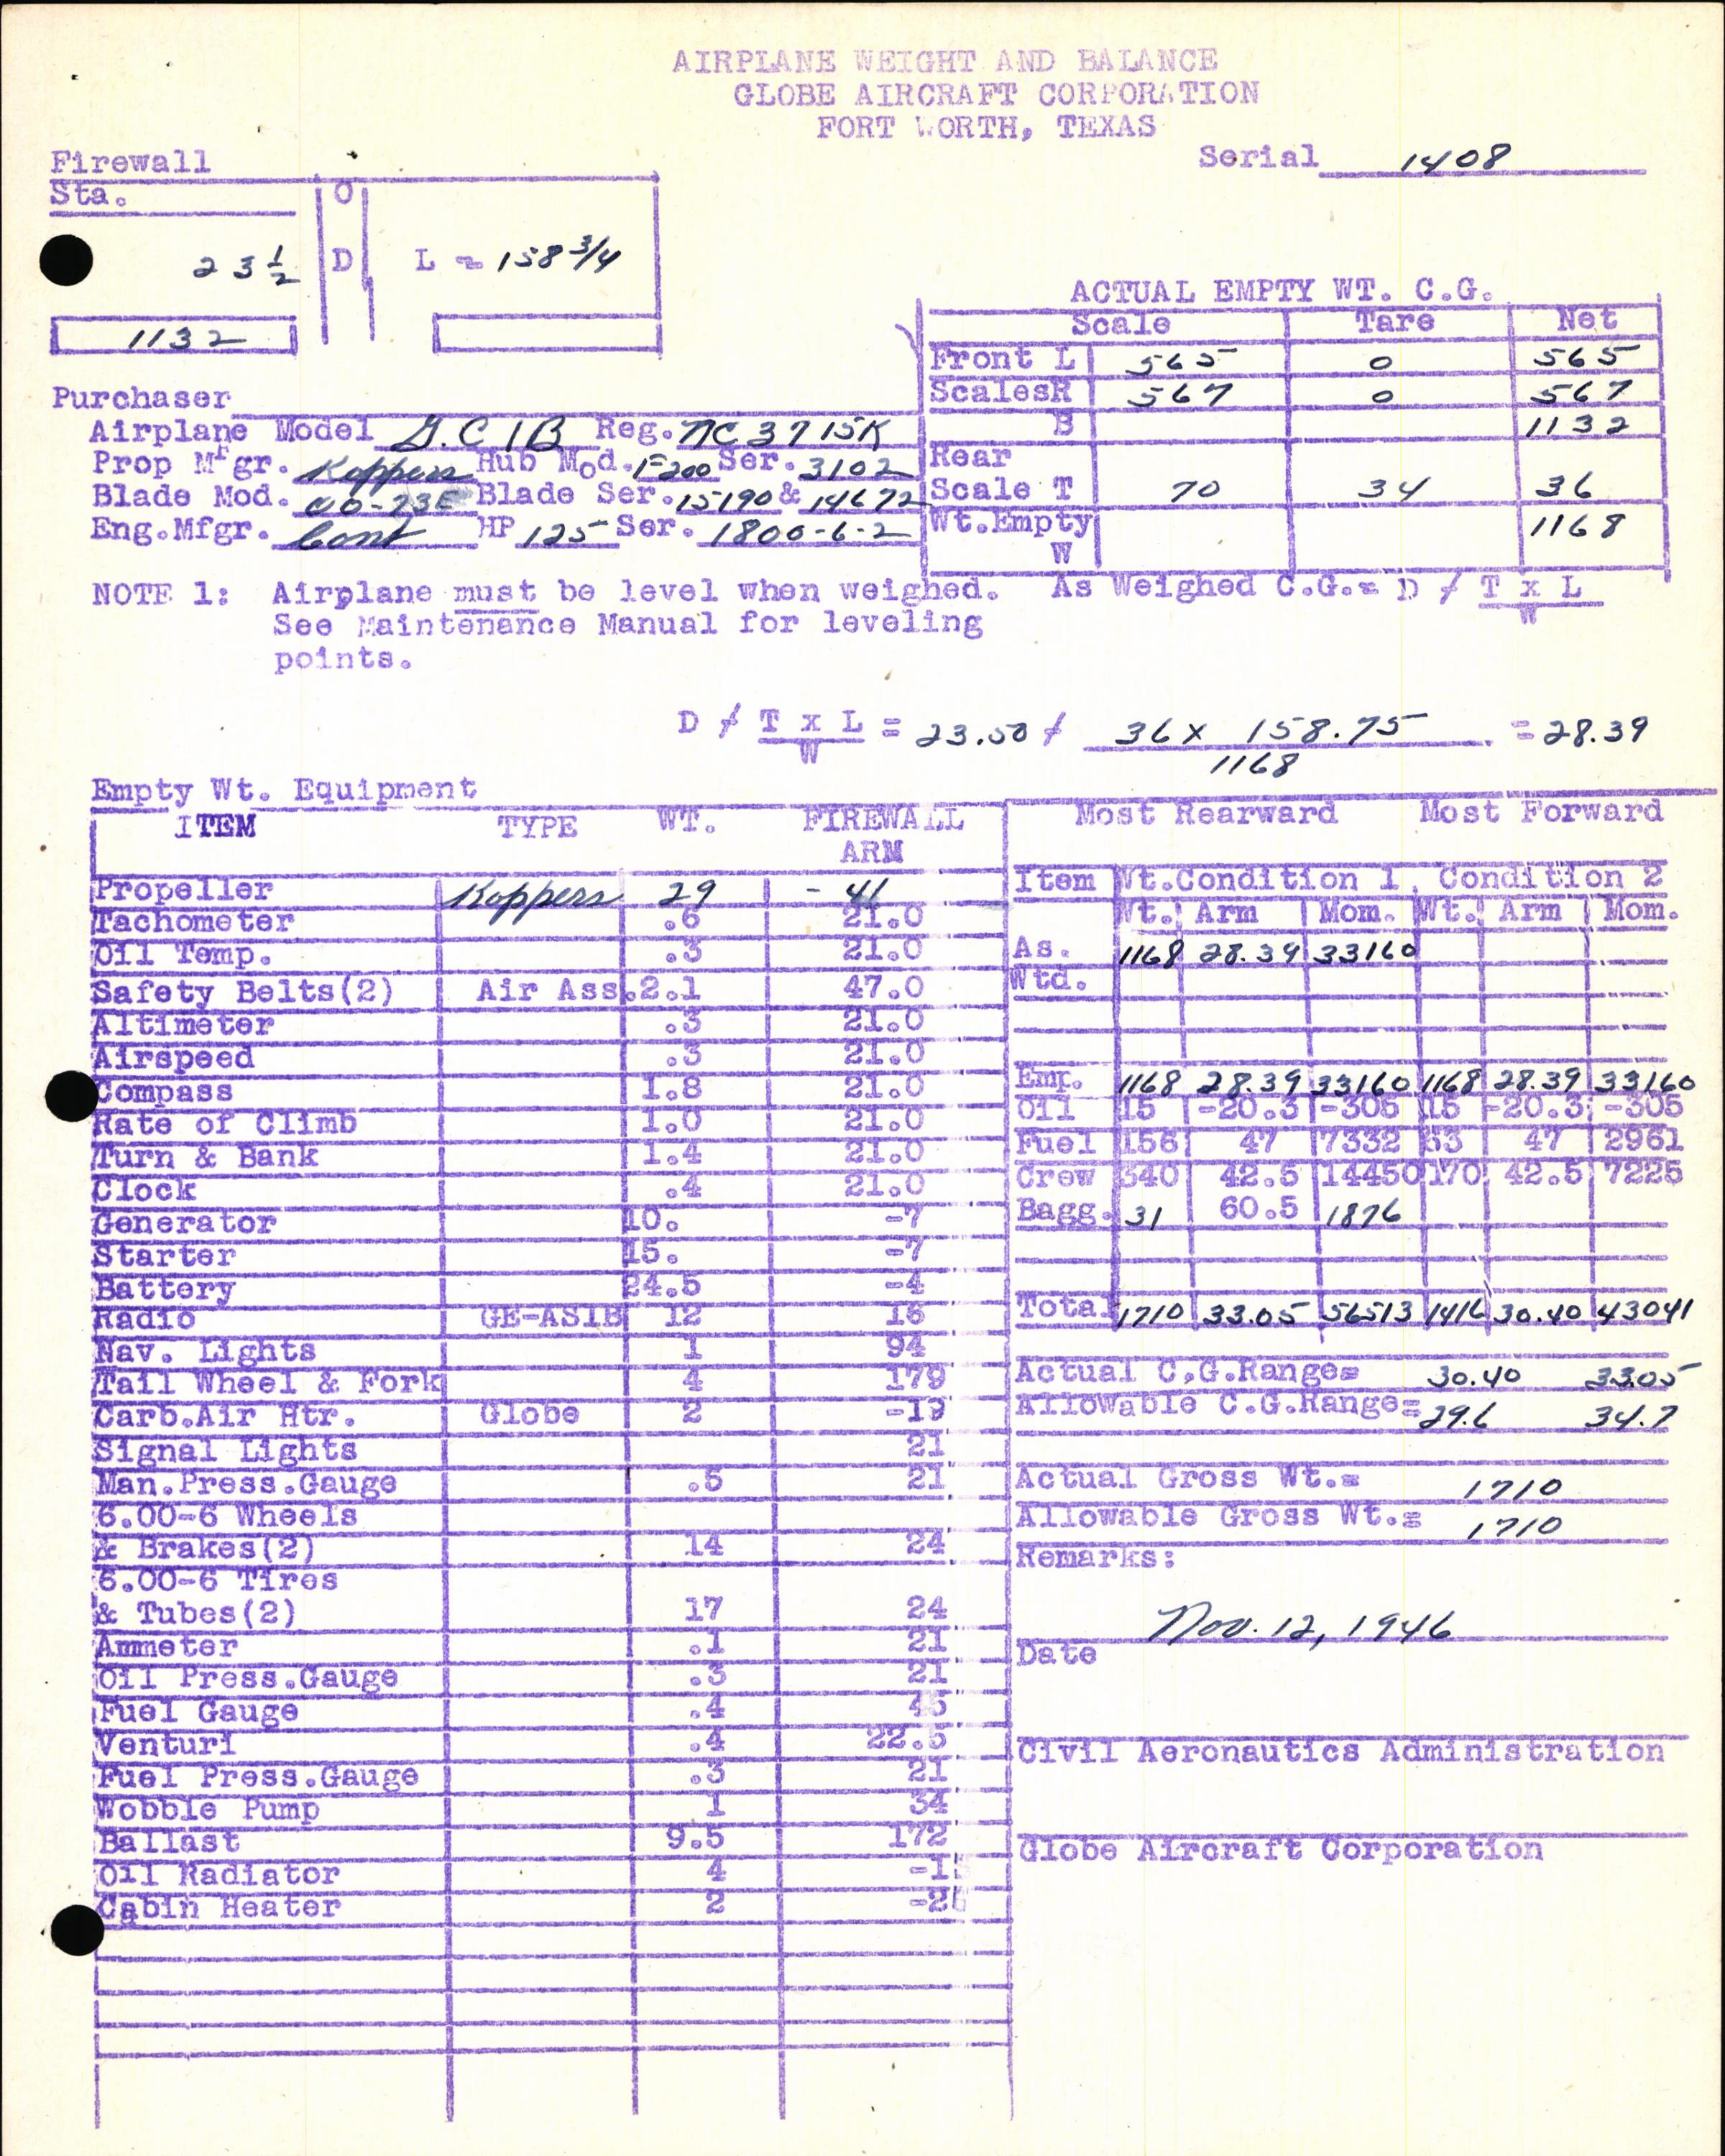 AIRPLANE WEIGHT AND BALANCE
GLOBE AIRCRAFT CORPORATION
FORT WORTH, TEXAS
Serial 1408
Firewall
Sta.
O
23 1/2 D L = 158 3/4
1132
ACTUAL EMPTY WT. C.G.
Scale Tare Net
Front L 565 0 565
Scales R 567 0 567
B 1132
Rear
Scale T 70 34 36
Wt. Empty 1168
W
Purchaser
Airplane Model G.C1B Reg. NC3715K
Prop Mfgr. Koppers Hub Mod. F200 Ser. 3102
Blade Mod. 00-73E Blade Ser. 15190 & 14672
Eng.Mfgr. Cont HP 125 Ser. 1800-6-2
NOTE 1: Airplane must be level when weighed. As Weighed C.G.= D / T x L
W
See Maintenance Manual for leveling
points.
D / T x L = 23.50 / 36 x 158.75 = 28.39
W 1168
Empty Wt. Equipment
ITEM TYPE WT. FIREWALL
ARM
Propeller Koppers 29 -41
Tachometer .6 21.0
Oil Temp. .3 21.0
Safety Belts(2) Air Ass. 2.1 47.0
Altimeter .3 21.0
Airspeed .3 21.0
Compass 1.8 21.0
Rate of Climb 1.0 21.0
Turn & Bank 1.4 21.0
Clock .4 21.0
Generator 10. -7
Starter 15. -7
Battery 24.5 -4
Radio GE-AS1B 12 15
Nav. Lights 1 94
Tail Wheel & Fork 4 179
Carb.Air Htr. Globe 2 -19
Signal Lights 21
Man.Press.Gauge .5 21
6.00-6 Wheels
& Brakes(2) 14 24
6.00-6 Tires
& Tubes(2) 17 24
Ammeter .1 21
Oil Press.Gauge .3 21
Fuel Gauge .4 45
Venturi .4 22.5
Fuel Press.Gauge .3 21
Wobble Pump 1 34
Ballast 9.5 172
Oil Radiator 4
Cabin Heater 2
Most Rearward Most Forward
Item Wt.Condition 1 Condition 2
Wt. Arm Mom. Wt. Arm Mom.
As. 1168 28.39 33160
Wtd.
Emp. 1168 28.39 33160 1168 28.39 33160
Oil 15 -20.3 -305 15 -20.3 -305
Fuel 156 47 7332 63 47 2961
Crew 340 42.5 14450 170 42.5 7225
Bagg. 31 60.5 1876
Total 1710 33.05 56513 1416 30.40 43041
Actual C.G.Range= 30.40 33.05
Allowable C.G.Range= 29.6 34.7
Actual Gross Wt.= 1710
Allowable Gross Wt.= 1710
Remarks:
Nov. 12, 1946
Date
Civil Aeronautics Administration
Globe Aircraft Corporation